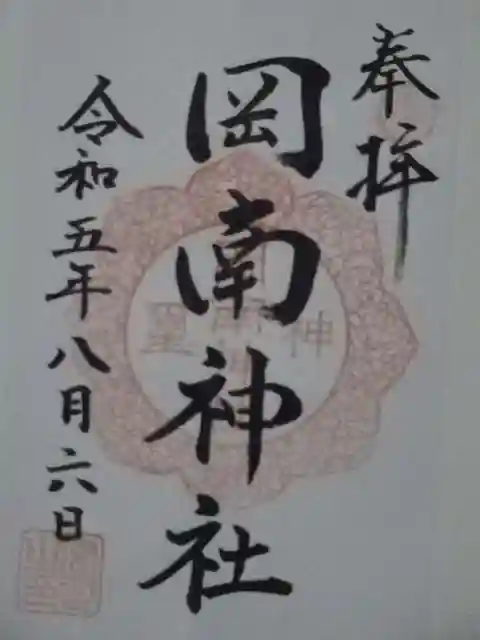 奉拝
岡南神社
令和五年八月六日